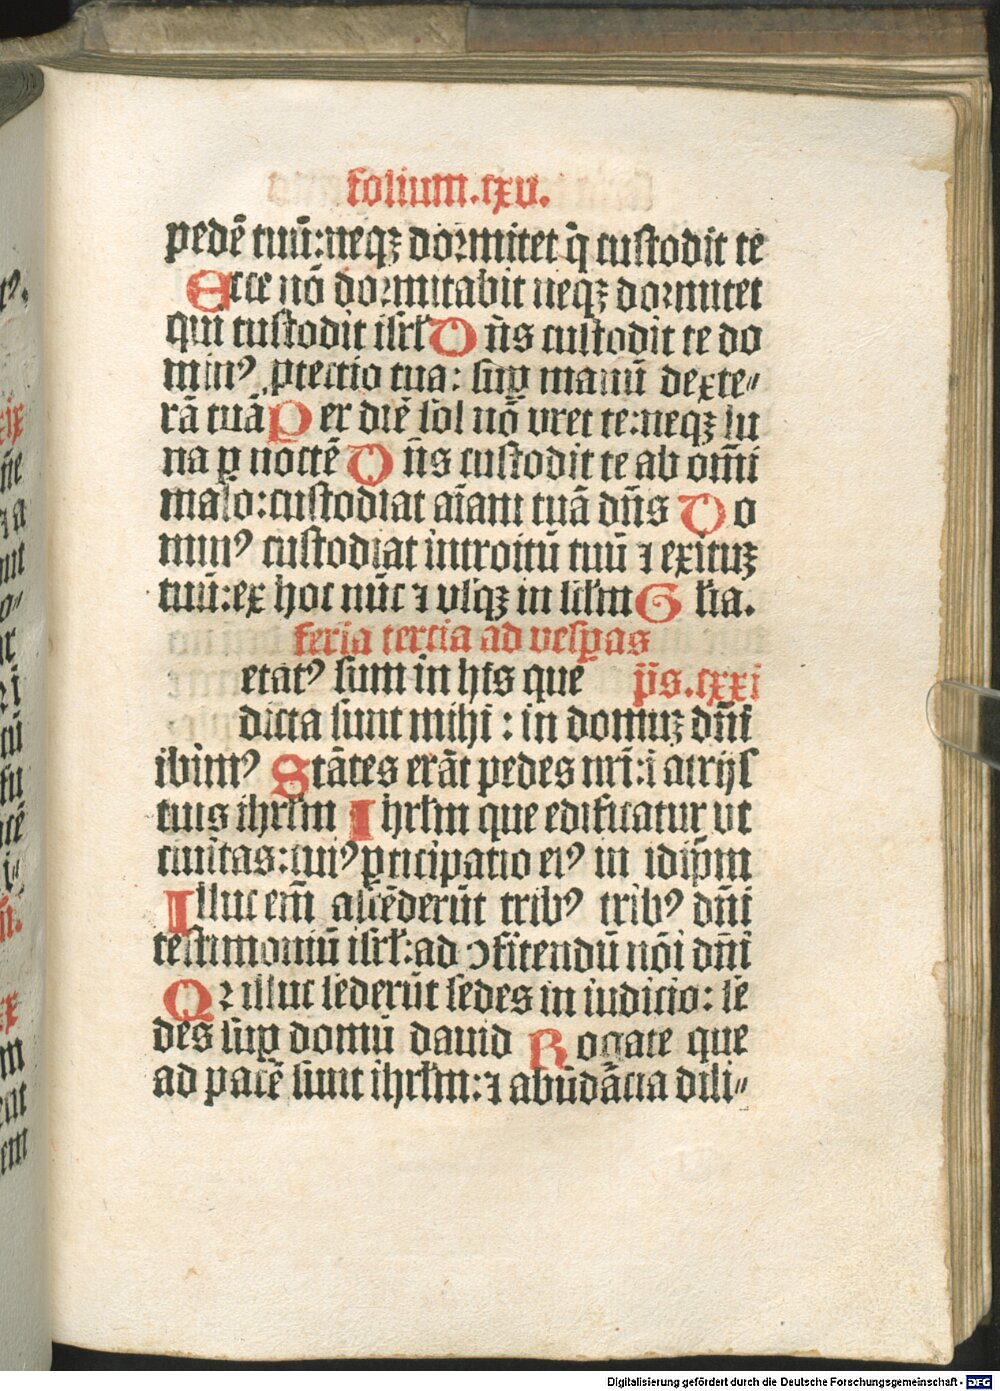 folium.cxv.
pedē tuū:neqꝫ dormitet q̄ custodit te
Ecce nō dormitabit neqꝫ dormitet
qui custodit isrl̄ Dn̄s custodit te do
minꝰ ꝓtectio tua: suꝑ manū dexte⸗
rā tuā Per diē sol nō vret te:neqꝫ lu
na ꝑ noctē Dn̄s custodit te ab om̄i
malo:custodiat aīam tuā dn̄s Do
minꝰ custodiat introitū tuū ⁊ exituꝫ
tuū:ex hoc nūc ⁊ vsqꝫ in scl̄m Gl̄ia.
feria tercia ad vesꝑas
etatꝰ sum in hīs que p̄s.cxxi
dicta sunt mihi : in domuꝫ dn̄i
ibimꝰ Stātes erāt pedes nr̄i:ī atrijs
tuis ihrl̄m Ihrl̄m que edificatur vt
ciuitas:cuiꝰ ꝑticipatio eiꝰ in idip̄m
Illuc em̄ ascēderūt tribꝰ tribꝰ dn̄i
testimoniū isrl̄:ad ↄfitendū nōi dn̄i
Qꝛ illuc sederūt sedes in iudicio: se
des suꝑ domū dauid Rogate que
ad pacē sunt ihrl̄m:⁊ abūdācia dili⸗
Digitalisierung gefördert durch die Deutsche Forschungsgemeinschaft - DFG